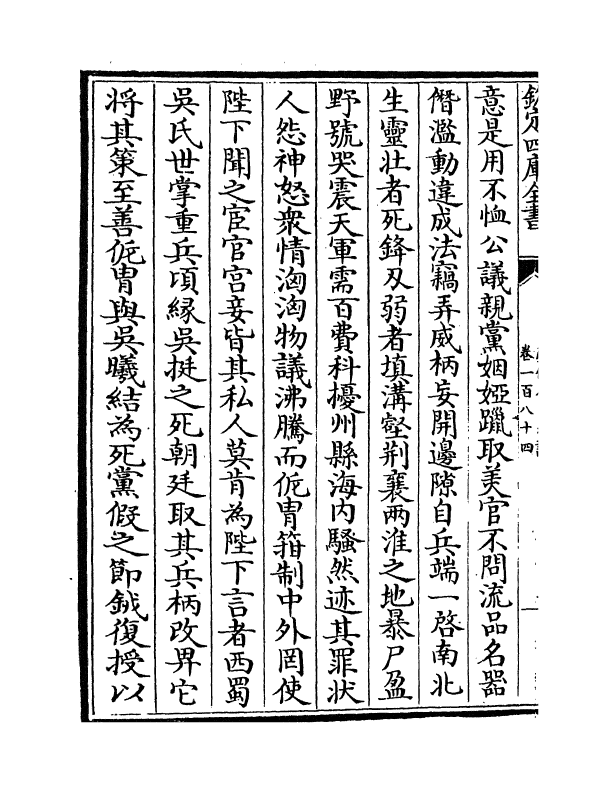 欽定四庫全書
卷一百八十四
意是用不恤公議親黨姻婭躐取美官不問流品名器
僭濫動違成法竊弄威柄妄開邊隙自兵端一啓南北
生靈壯者死鋒刃弱者填溝壑荆襄兩淮之地暴尸盈
野號哭震天軍需百費科擾州縣海内騷然迹其罪狀
人怨神怒衆情洶洶物議沸騰而侂胄箝制中外罔使
陛下聞之宦官宫妾皆其私人莫肯為陛下言者西蜀
吳氏世掌重兵頃緣吳挺之死朝廷取其兵柄改畀它
将其策至善侂胄與吳曦結為死黨假之節鉞復授以